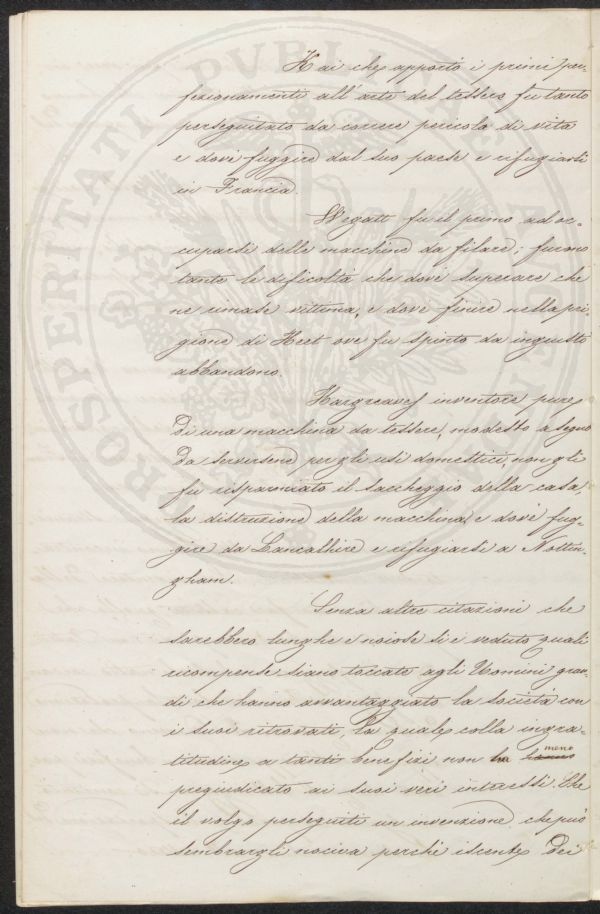 Kai che apportò i primi per-
fezionamenti all'arte del tessere fu tanto
perseguitato da correre pericolo di vita
e dovè fuggire dal suo paese e rifugiarsi
in Francia.
Wegatt fu il primo ad oc-
cuparsi delle macchine da filare; furono
tante le dificoltà che dovè superare che
ne rimase vittima, e dovè finire nella pri-
gione di Heet ove fu spinto da ingiusto
abbandono.
Hargreaves inventore pure
di una macchina da tessere, modesto a segno
da servirsene per gli usi domestici, non gli
fu risparmiato il saccheggio della casa,
la distruzione della macchina, e dovè fug-
gire da Lancashire e rifugiarsi a Nottin-
gham.
Senza altre citazioni che
sarebbero lunghe e noiose si è veduto quali
ricompense siano toccate agli Uomini gran-
di che hanno avvantaggiato la società con
i suoi ritrovati, la quale colla ingra-
titudine a tanti benefizi non ha meno
pregiudicato ai suoi veri interessi. Che
il volgo perseguiti un invenzione che può
sembrargli nociva perchè iscente dei
PROSPERITATI PVBLICAE AVGENDAE